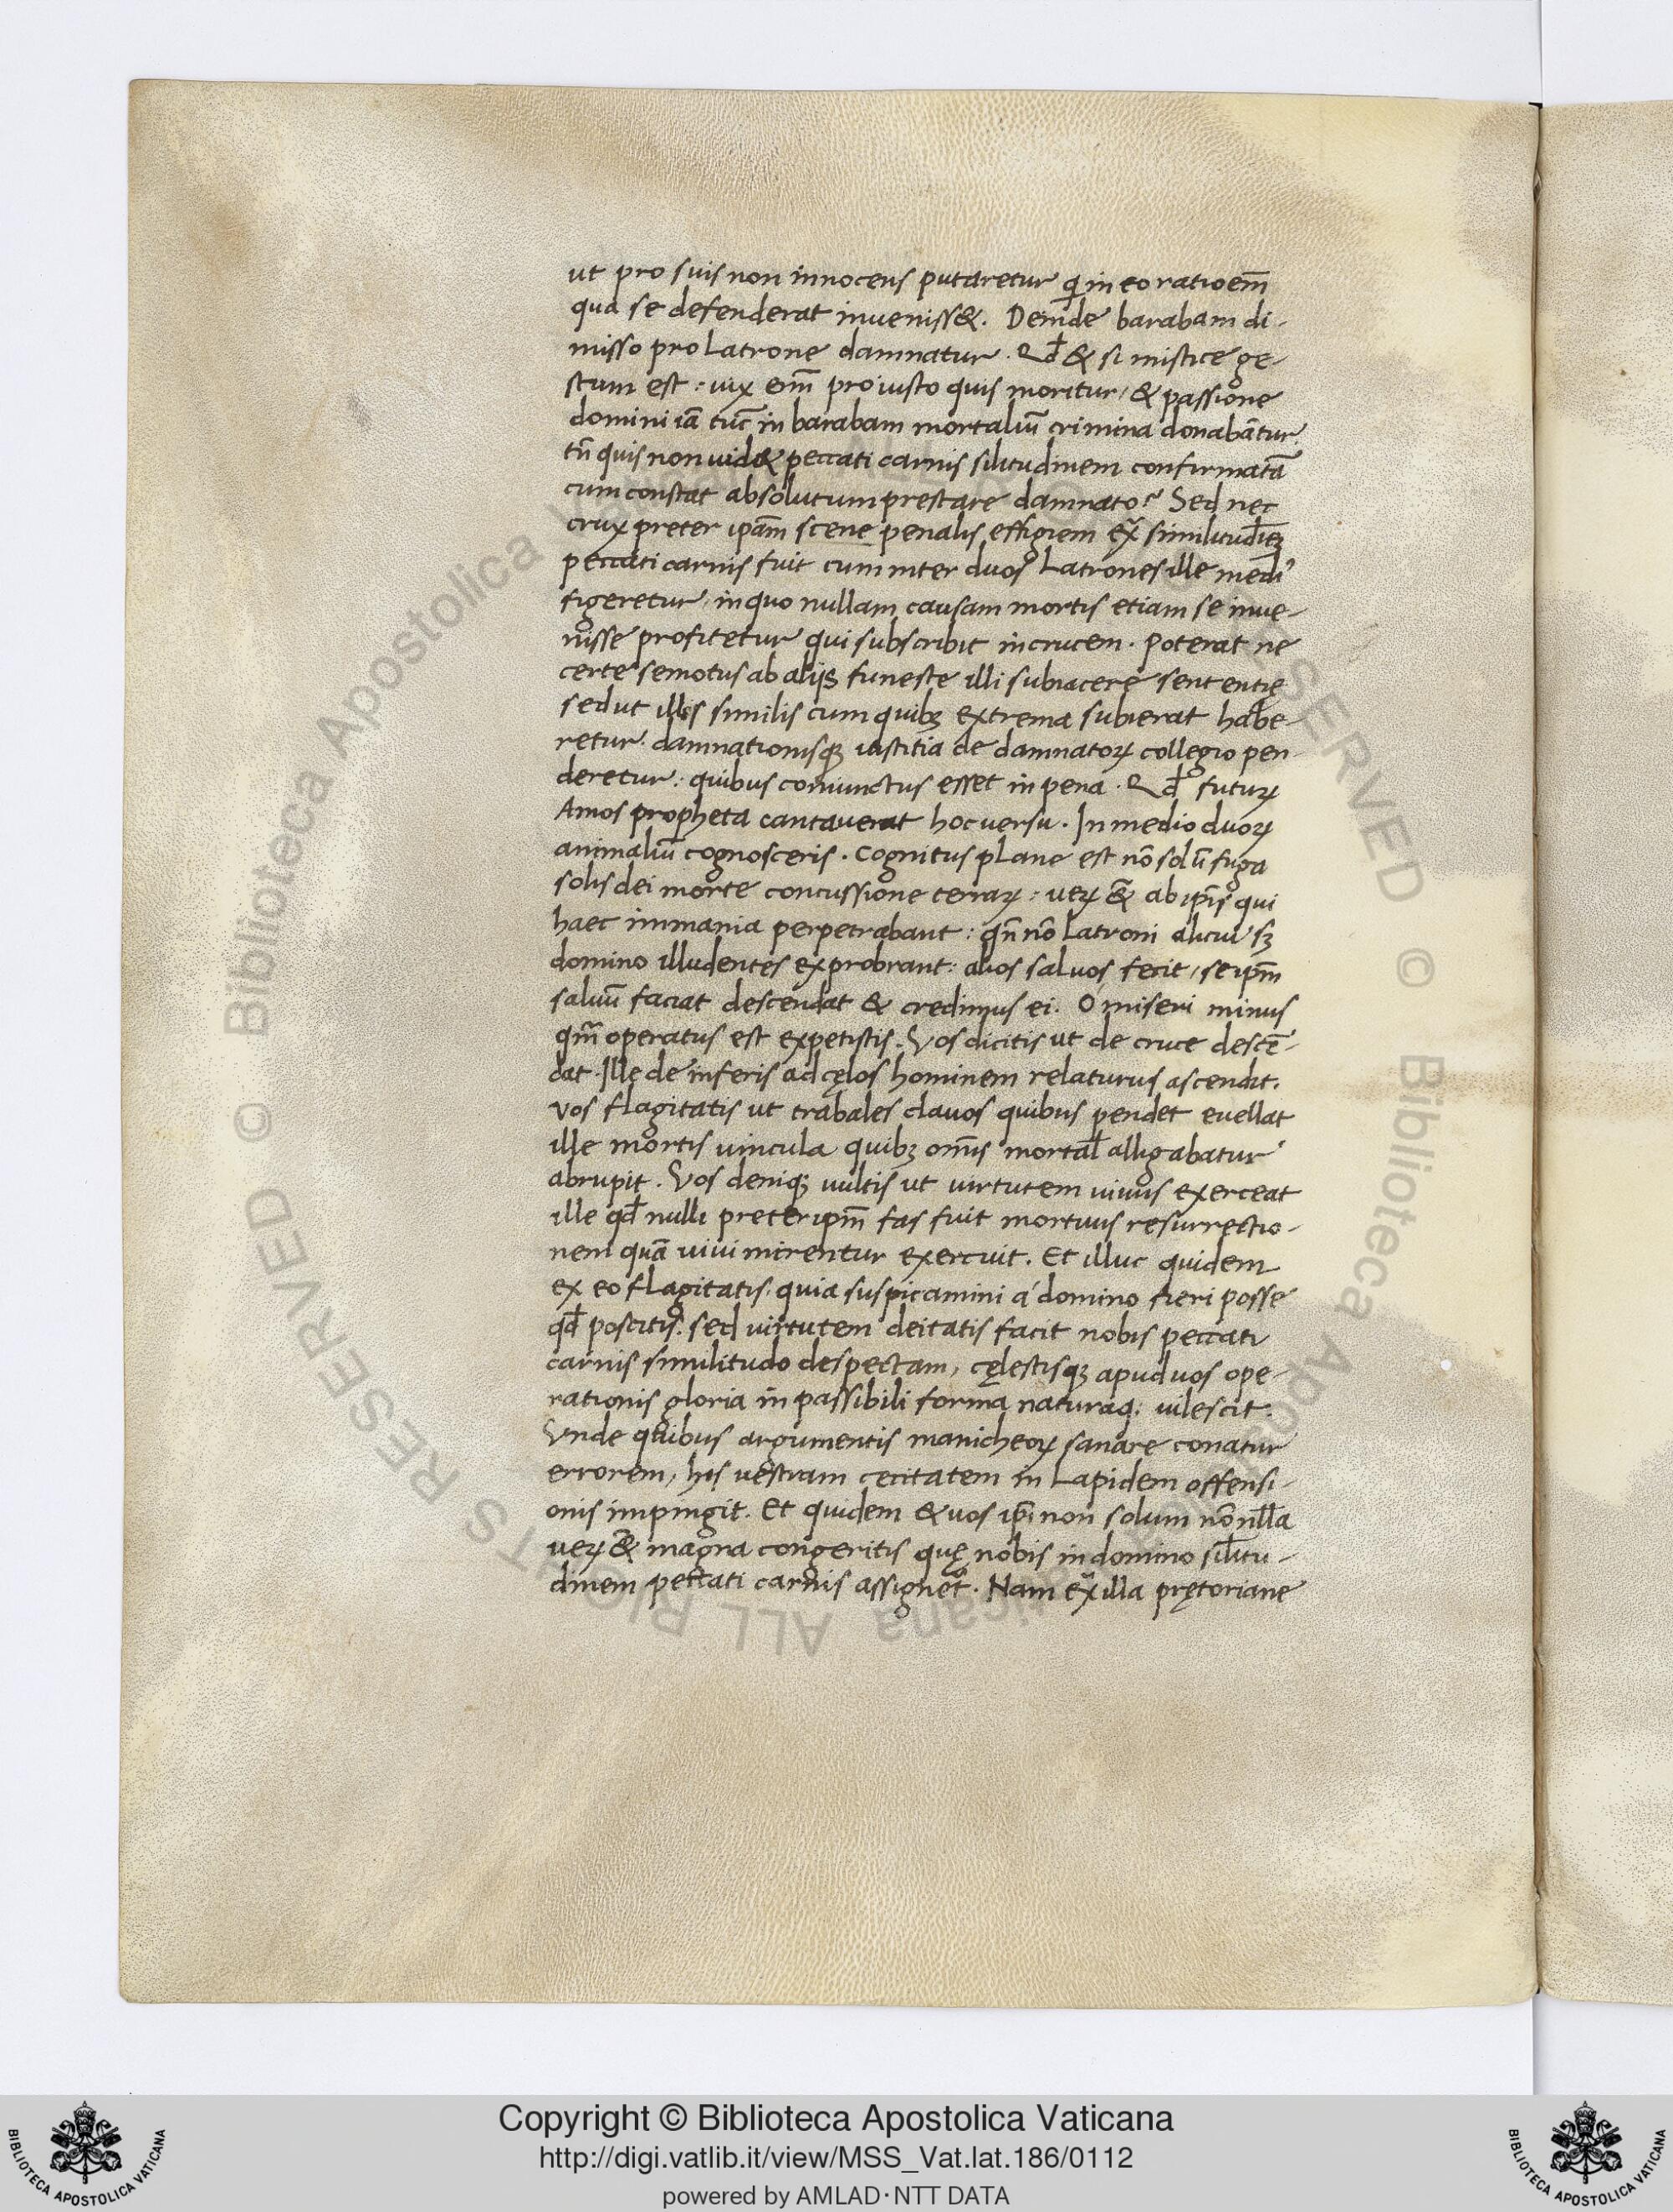 ut pro suis non innocens putaretur q in eo ratioem̄
qua se defenderat inueniss&. Deinde barabam di-
misso pro Latrone damnatur. Qd̄ & si mistice ge-
stum est: uix em̄ pro iusto quis moritur, & passione
domini iā tūc in barabam mortaliū crimina donabātur
tn̄ quis non uid& peccati carnis silitudinem confirmatā
cum constat absolutum prestare damnato? Sed nec
crux preter ip̄am scene penalis effigiem ex̄ similitudīez
peccati carnis fuit cum inter duos Latrones ille mediꝰ
figeretur, in quo nullam causam mortis etiam se inue-
nisse profitetur qui subscribit in crucem. Poterat ne
certe semotus ab alijs funeste illi subiacere sententię
sed ut illis similis cum quibꝫ extrema subierat habe-
retur. damnationisqꝫ iustitia de damnatoꝝ collegio pen-
deretur: quibus coniunctus esset in pena. Qd̄ futuꝝ
Amos propheta cantauerat hoc uersu. In medio duoꝝ
animaliū cognosceris. Cognitus plane est nō solū fuga
solis dei morte concussione terraꝝ: ueꝝ &̄ ab ip̄is qui
haec immania perpetrabant: qn̄ nō Latroni alicui sꝫ
domino illudentes exprobrant: alios saluos fecit, se ip̄m
saluū faciat descendat & credimus ei. O miseri minus
qm̄ operatus est expetistis. Vos dicitis ut de cruce descē-
dat. Ille de inferis ad cęlos hominem relaturus ascendit.
Vos flagitatis ut trabales clauos quibus pendet euellat
ille mortis uincula quibꝫ om̄is mortal̄ alligabatur
abrupit. Vos deniqꝫ uultis ut uirtutem uiuus exerceat
ille qd̄ nulli preter ip̄m fas fuit mortuus resurrectio-
nem quā uiui mirentur exercuit. Et illuc quidem
ex eo flagitatis, quia suspicamini á domino fieri posse
qd̄ poscitis. sed uirtutem deitatis facit nobis peccati
carnis similitudo despectam, cęlestisqꝫ apud uos ope-
rationis gloria in passibili forma naturaq; uilescit.
Vnde quibus argumentis manicheoꝝ sanare conatur
errorem, his uestram cecitatem in Lapidem offensi-
onis impingit. Et quidem & uos ip̄i non solum nōnl̄la
ueꝝ &̄ magna congeritis quę nobis in domino sil̄itu-
dinem peccati carnis assignet̄. Nam ex̄ illa prętoriane
Copyright © Biblioteca Apostolica Vaticana
http://digi.vatlib.it/view/MSS_Vat.lat.186/0112
powered by AMLAD·NTT DATA
BIBLIOTECA APOSTOLICA VATICANA
BIBLIOTECA APOSTOLICA VATICANA
© Biblioteca Apostolica Vaticana ALL RIGHTS RESERVED